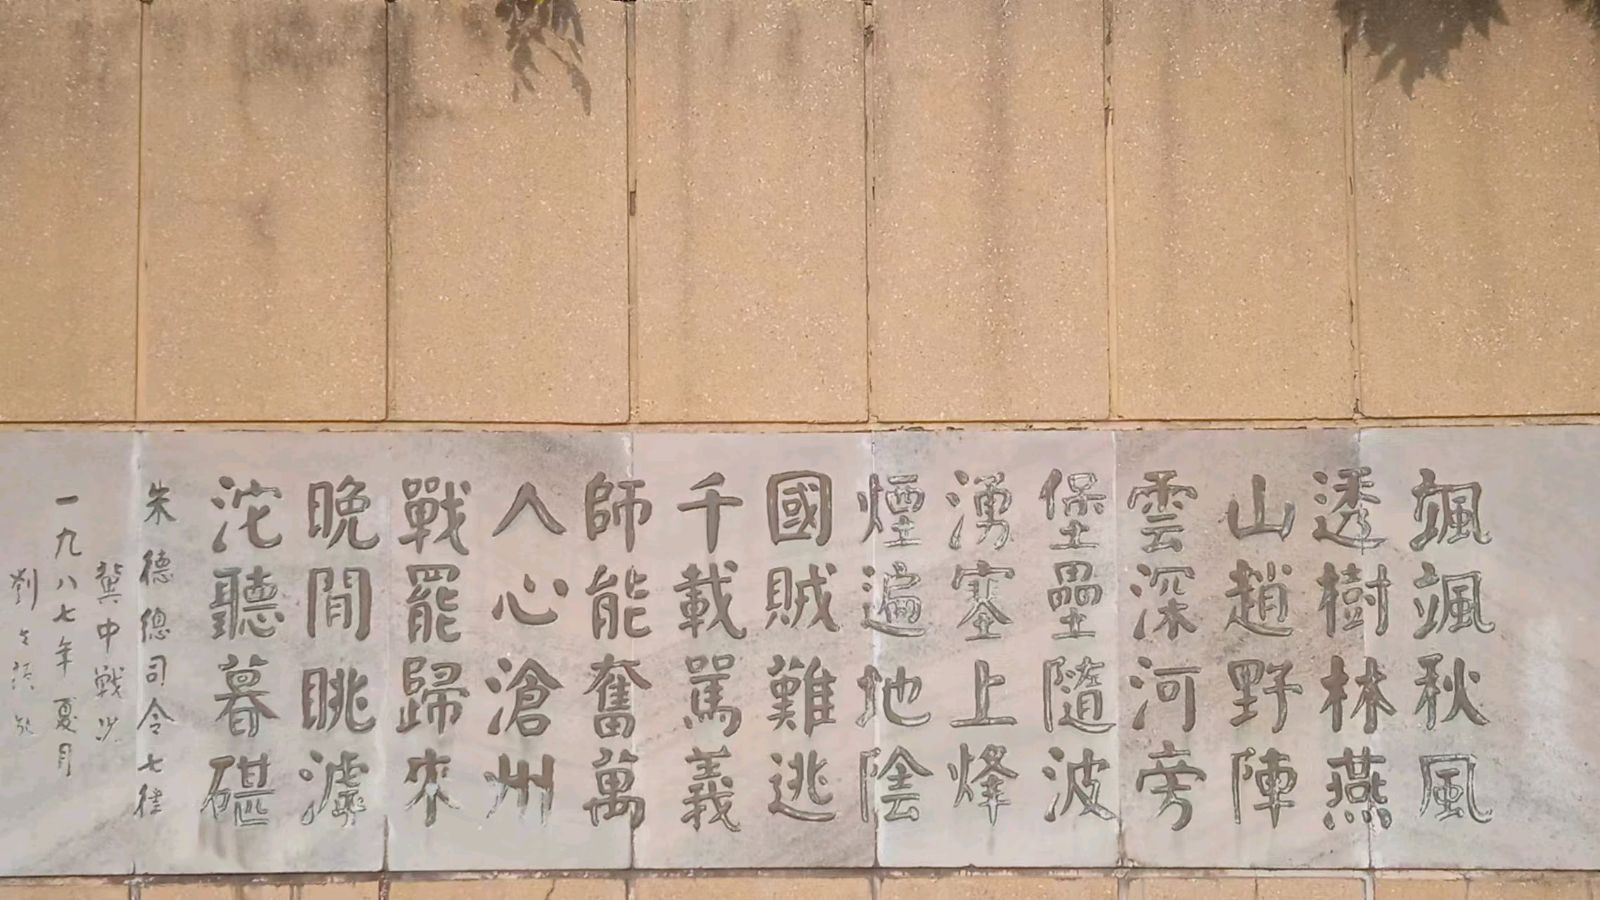 颯颯秋風
透樹林燕
山趙野陣
雲深河旁
堡壘隨波
湧塞上烽
煙遍地陰
國賊難逃
千載罵義
師能奮萬
人心滄州
戰罷歸來
晚閒眺滹
沱聽暮碪
朱德總司令七律
龔中戰沙
一九八七年夏月
劉